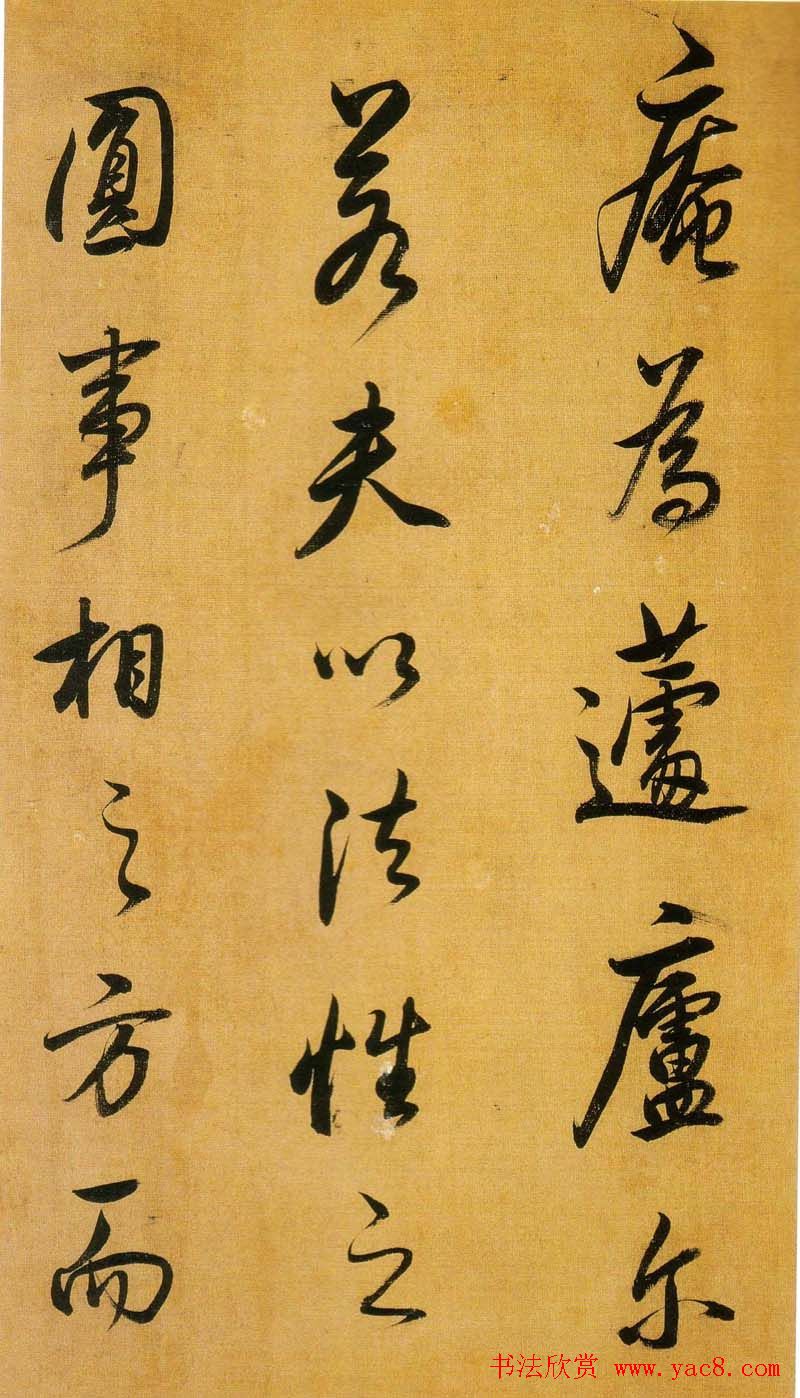 庵為蘧廬尔
若夫以法性之
圓事相之方而
书法欣赏 www.yac8.com